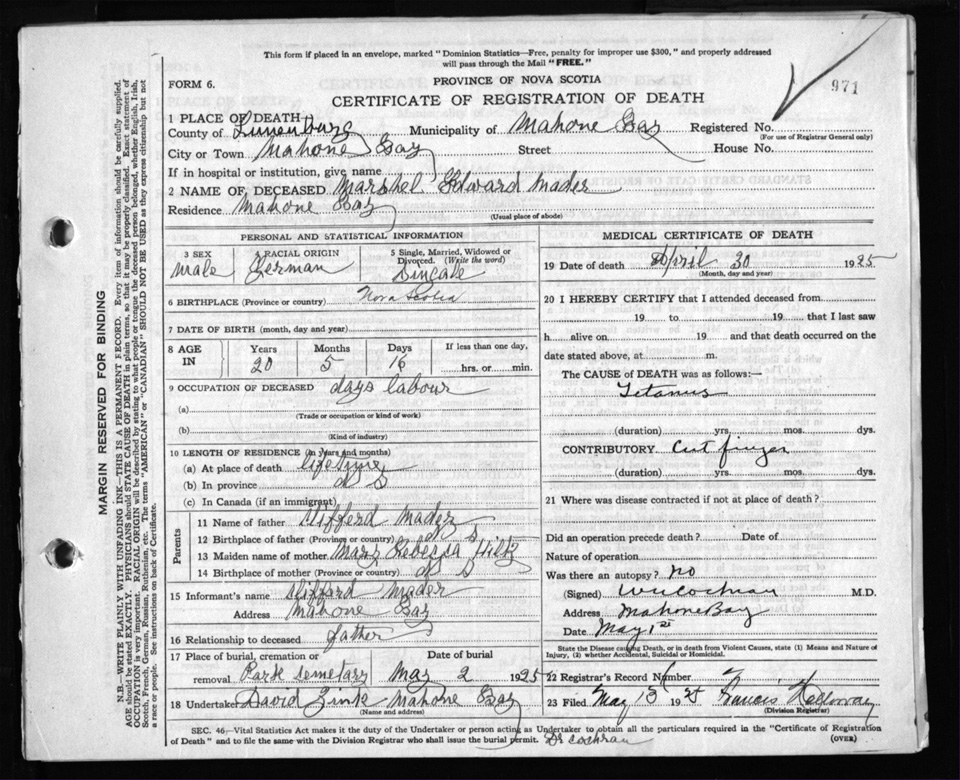 This form if placed in an envelope, marked "Dominion Statistics—Free, penalty for improper use $300," and properly addressed
will pass through the Mail "FREE."
FORM 6.
PROVINCE OF NOVA SCOTIA
971
CERTIFICATE OF REGISTRATION OF DEATH
1 PLACE OF DEATH
County of Lunenburg Municipality of Mahone Bay Registered No.
(For use of Registrar General only)
City or Town Mahone Bay Street House No.
If in hospital or institution, give name
2 NAME OF DECEASED Marshel Edward Mader
Residence Mahone Bay
(Usual place of abode)
PERSONAL AND STATISTICAL INFORMATION
3 SEX
Male
4 RACIAL ORIGIN
German
5 Single, Married, Widowed or
Divorced. (Write the word)
Singale
6 BIRTHPLACE (Province or country) Nova Scotia
7 DATE OF BIRTH (month, day and year)
8 AGE IN
Years Months Days If less than one day,
20 5 16 hrs. or min.
9 OCCUPATION OF DECEASED days labour
(a)
(Trade or occupation or kind of work)
(b)
(Kind of industry)
10 LENGTH OF RESIDENCE (in years and months)
(a) At place of death lifetime
(b) In province N S
(c) In Canada (if an immigrant)
Parents
11 Name of father Clifferd Mader
12 Birthplace of father (Province or country) N S
13 Maiden name of mother Mary Rebecca Hiltz
14 Birthplace of mother (Province or country) N S
15 Informant's name Clifferd Mader
Address Mahone Bay
16 Relationship to deceased father
17 Place of burial, cremation or Date of burial
removal Park semetary May 2 1925
18 Undertaker David Zink Mahone Bay
(Name and address)
MEDICAL CERTIFICATE OF DEATH
19 Date of death April 30 1925
(Month, day and year)
20 I HEREBY CERTIFY that I attended deceased from
19 to 19 that I last saw
h alive on 19 and that death occurred on the
date stated above, at m.
The CAUSE of DEATH was as follows:—
Tetanus
(duration) yrs. mos. dys.
CONTRIBUTORY Cut finger
(duration) yrs. mos. dys.
21 Where was disease contracted if not at place of death?
Did an operation precede death? Date of
Nature of operation
Was there an autopsy? No
(Signed) W Cochran M.D.
Address Mahone Bay
Date May 1st
State the Disease causing Death, or in death from Violent Causes, state (1) Means and Nature of
Injury, (2) whether Accidental, Suicidal or Homicidal.
22 Registrar's Record Number
23 Filed May 13 1925 Francis Holloway
(Division Registrar)
SEC. 46, Vital Statistics Act makes it the duty of the Undertaker or person acting as Undertaker to obtain all the particulars required in the "Certificate of Registration
of Death" and to file the same with the Division Registrar who shall issue the burial permit. Dr Cochran
(OVER)
MARGIN RESERVED FOR BINDING
N.B.—WRITE PLAINLY WITH UNFADING INK—THIS IS A PERMANENT RECORD. Every item of information should be carefully supplied.
AGE should be stated EXACTLY. PHYSICIANS should STATE CAUSE OF DEATH in plain terms, so that it may be properly classified. Exact statement of
OCCUPATION is very important. RACIAL ORIGIN will be described by stating to what people or tongue the deceased person belonged, whether English, Irish,
Scotch, French, German, Russian, Ruthenian, etc. The terms "AMERICAN" or "CANADIAN" SHOULD NOT BE USED as they express citizenship but not
a race or people. See instructions on back of Certificate.